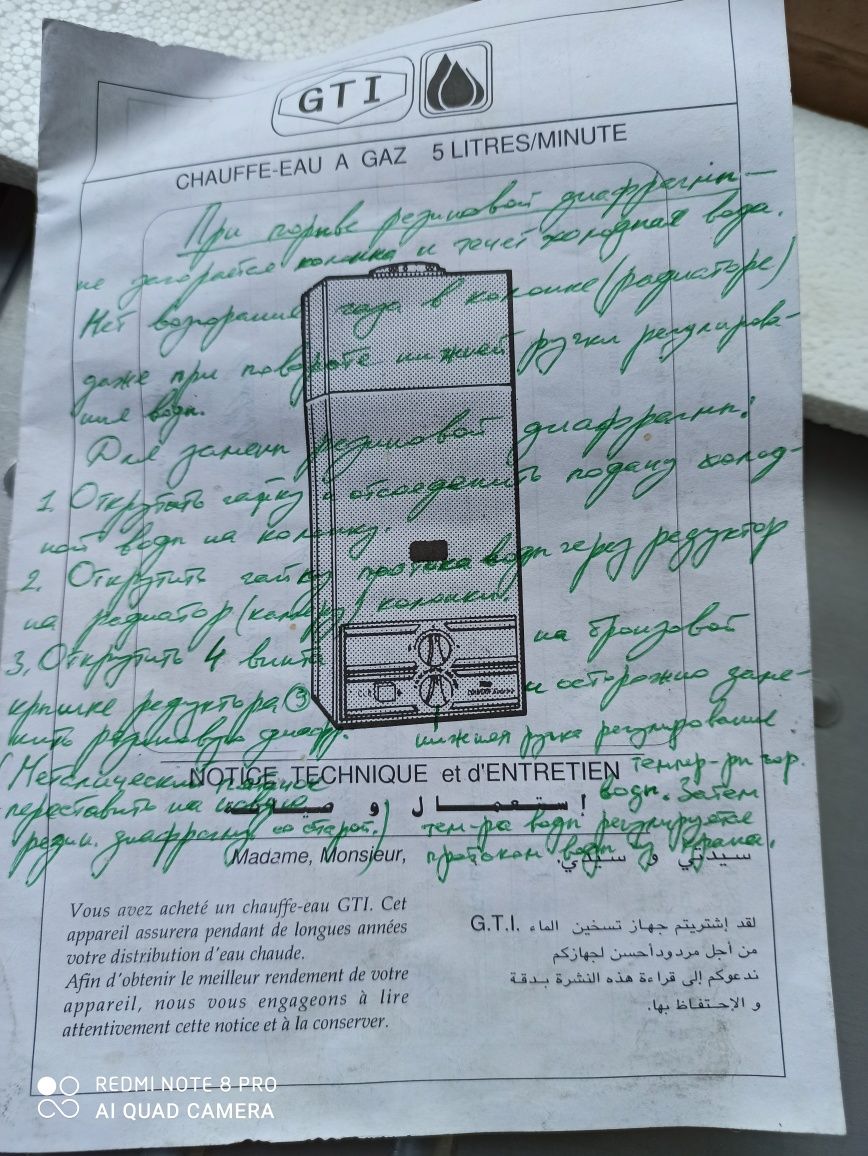 GTI
CHAUFFE-EAU A GAZ 5 LITRES/MINUTE
При порыве резиновой диафрагмы —
не загорается колонка и течет холодная вода.
Нет возгорания газа в колонке (радиаторе)
даже при повороте нижней ручки регулирова-
ния воды.
Для замены резиновой диафрагмы:
1. Открутить гайку и отсоеденить подачу холод-
ной воды на колонку.
2. Открутить гайку протока воды через редуктор
на редиатор (камеру) колонки.
3. Открутить 4 винта на бронзовой
крышке редуктора ③ и осторожно заме-
нить резиновую диафр.
нижняя ручка регулирования
темпер-ры гор.
воды. Затем
тем-ра воды регулируется
протоком воды из крана.
(Металический
переставить на новую
резин. диафрагму со старой.)
NOTICE TECHNIQUE et d'ENTRETIEN
إستعمال و صيانة
Madame, Monsieur,
سيدتي و سيدي.
Vous avez acheté un chauffe-eau GTI. Cet
appareil assurera pendant de longues années
votre distribution d'eau chaude.
Afin d'obtenir le meilleur rendement de votre
appareil, nous vous engageons à lire
attentivement cette notice et à la conserver.
لقد إشتريتم جهاز تسخين الماء .G.T.I
من أجل مردود أحسن لجهازكم
ندعوكم إلى قراءة هذه النشرة بدقة
و الإحتفاظ بها.
REDMI NOTE 8 PRO
AI QUAD CAMERA